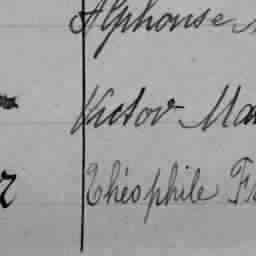 Alphonse
Victor
Théophile